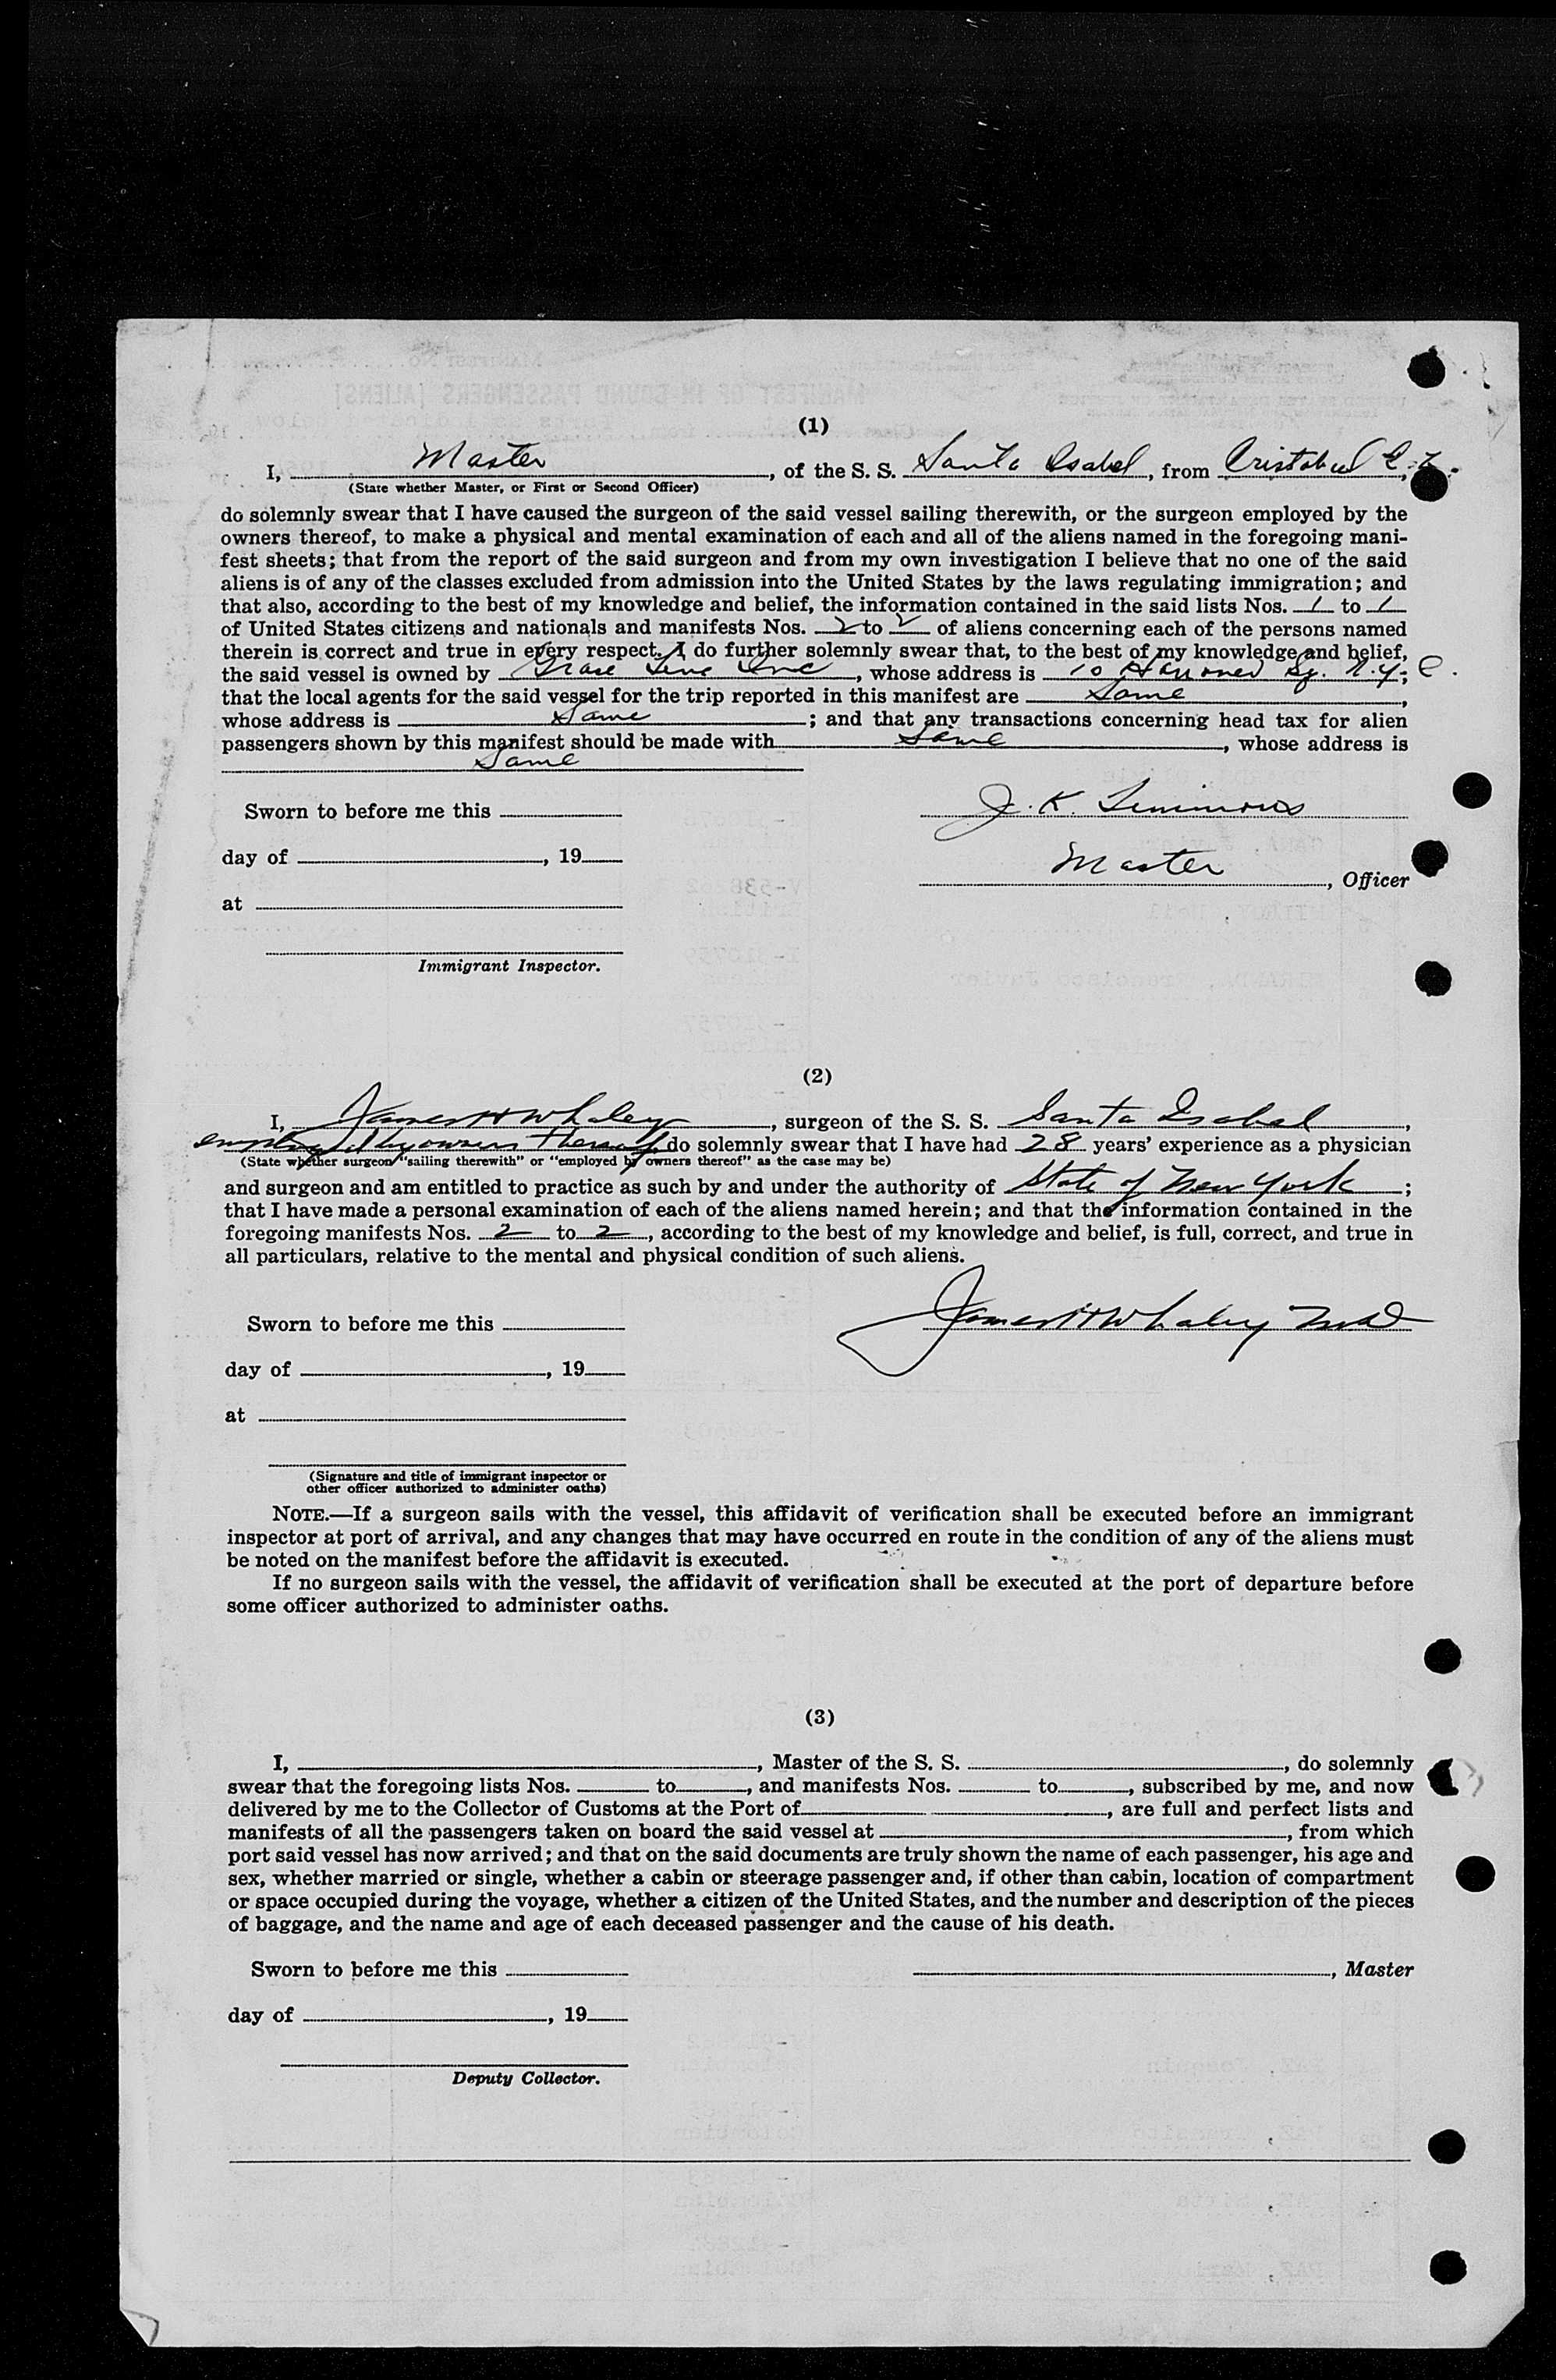 (1)
I, Master, of the S. S. Santa Isabel, from Cristobal C.Z.,
(State whether Master, or First or Second Officer)
do solemnly swear that I have caused the surgeon of the said vessel sailing therewith, or the surgeon employed by the
owners thereof, to make a physical and mental examination of each and all of the aliens named in the foregoing mani-
fest sheets; that from the report of the said surgeon and from my own investigation I believe that no one of the said
aliens is of any of the classes excluded from admission into the United States by the laws regulating immigration; and
that also, according to the best of my knowledge and belief, the information contained in the said lists Nos. 1 to 1
of United States citizens and nationals and manifests Nos. 2 to 2 of aliens concerning each of the persons named
therein is correct and true in every respect. I do further solemnly swear that, to the best of my knowledge and belief,
the said vessel is owned by Grace Line Inc, whose address is 10 Hanover Sq. N.Y.C.;
that the local agents for the said vessel for the trip reported in this manifest are Same,
whose address is Same; and that any transactions concerning head tax for alien
passengers shown by this manifest should be made with Same, whose address is
Same
Sworn to before me this
J. K. Simmons
day of , 19
Master, Officer
at
Immigrant Inspector.
(2)
I, James H Whaley, surgeon of the S. S. Santa Isabel,
employed by owners thereof, do solemnly swear that I have had 28 years' experience as a physician
(State whether surgeon "sailing therewith" or "employed by owners thereof" as the case may be)
and surgeon and am entitled to practice as such by and under the authority of State of New York;
that I have made a personal examination of each of the aliens named herein; and that the information contained in the
foregoing manifests Nos. 2 to 2, according to the best of my knowledge and belief, is full, correct, and true in
all particulars, relative to the mental and physical condition of such aliens.
Sworn to before me this
James H Whaley MD
day of , 19
at
(Signature and title of immigrant inspector or
other officer authorized to administer oaths)
NOTE.—If a surgeon sails with the vessel, this affidavit of verification shall be executed before an immigrant
inspector at port of arrival, and any changes that may have occurred en route in the condition of any of the aliens must
be noted on the manifest before the affidavit is executed.
If no surgeon sails with the vessel, the affidavit of verification shall be executed at the port of departure before
some officer authorized to administer oaths.
(3)
I, , Master of the S. S. , do solemnly
swear that the foregoing lists Nos. to , and manifests Nos. to , subscribed by me, and now
delivered by me to the Collector of Customs at the Port of , are full and perfect lists and
manifests of all the passengers taken on board the said vessel at , from which
port said vessel has now arrived; and that on the said documents are truly shown the name of each passenger, his age and
sex, whether married or single, whether a cabin or steerage passenger and, if other than cabin, location of compartment
or space occupied during the voyage, whether a citizen of the United States, and the number and description of the pieces
of baggage, and the name and age of each deceased passenger and the cause of his death.
Sworn to before me this , Master
day of , 19
Deputy Collector.